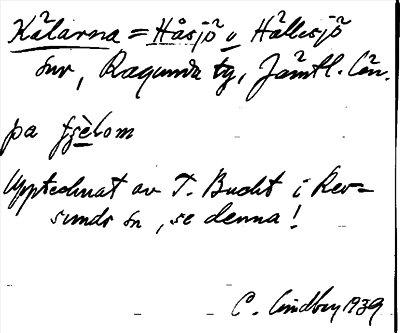 Kälarna = Håsjö o Hällesjö
snr, Ragunda tg, Jämtl. län.
pa fjèlom
Upptecknat av T. Bucht i Rev=
sunds sn, se denna!
C. Lindbey 1939